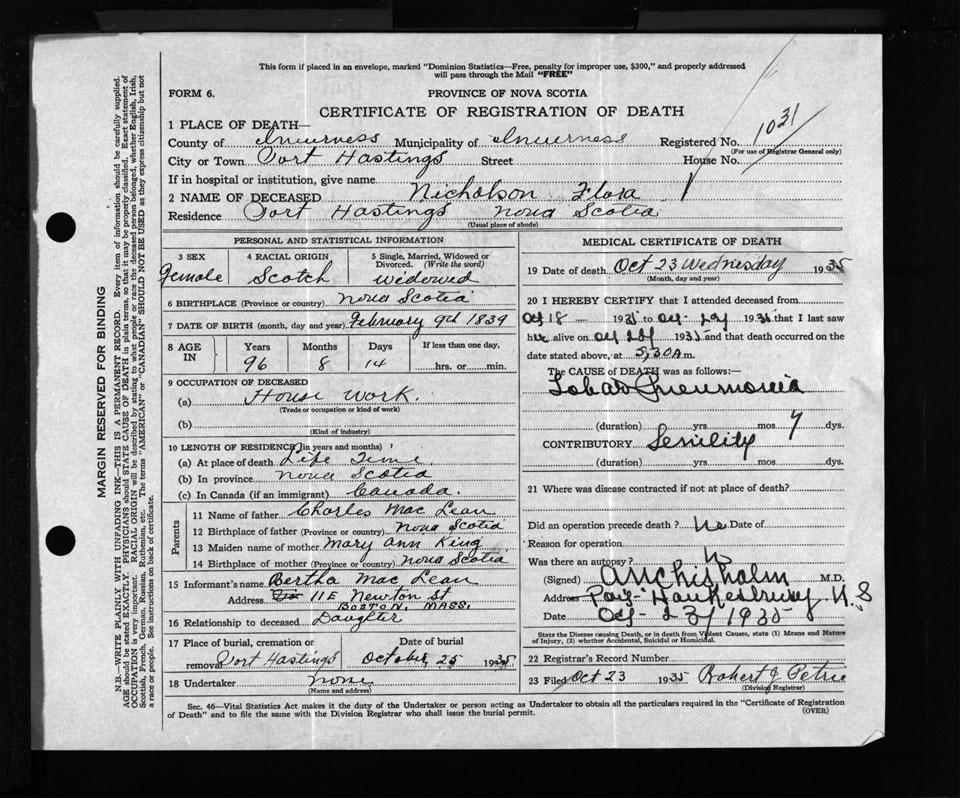 This form if placed in an envelope, marked "Dominion Statistics—Free, penalty for improper use, $300," and properly addressed
will pass through the Mail "FREE"
FORM 6.
PROVINCE OF NOVA SCOTIA
CERTIFICATE OF REGISTRATION OF DEATH
1 PLACE OF DEATH—
County of Inverness Municipality of Inverness Registered No. 1031
(For use of Registrar General only)
City or Town Port Hastings Street House No.
If in hospital or institution, give name
2 NAME OF DECEASED Nicholson Flora
Residence Port Hastings Nova Scotia
(Usual place of abode)
PERSONAL AND STATISTICAL INFORMATION
3 SEX 4 RACIAL ORIGIN 5 Single, Married, Widowed or
Divorced. (Write the word)
Female Scotch widowed
6 BIRTHPLACE (Province or country) Nova Scotia
7 DATE OF BIRTH (month, day and year) February 9th 1839
8 AGE IN Years Months Days If less than one day,
96 8 14 hrs. or min.
9 OCCUPATION OF DECEASED
(a) House work.
(Trade or occupation or kind of work)
(b)
(Kind of industry)
10 LENGTH OF RESIDENCE (in years and months)
(a) At place of death Life Time
(b) In province Nova Scotia
(c) In Canada (if an immigrant) Canada.
Parents
11 Name of father Charles Mac Lean
12 Birthplace of father (Province or country) Nova Scotia
13 Maiden name of mother Mary Ann King
14 Birthplace of mother (Province or country) Nova Scotia
15 Informant's name Bertha Mac Lean
Address 11 E Newton St
BOSTON, MASS.
16 Relationship to deceased Daughter
17 Place of burial, cremation or Date of burial
removal Port Hastings October 25 1935
18 Undertaker none
(Name and address)
MEDICAL CERTIFICATE OF DEATH
19 Date of death Oct 23 Wednesday 1935
(Month, day and year)
20 I HEREBY CERTIFY that I attended deceased from
Oct 18 1935 to Oct 1935 that I last saw
her alive on Oct 1935 and that death occurred on the
date stated above, at 5,30 a m.
The CAUSE of DEATH was as follows:—
Lobar Pneumonia
(duration) yrs. mos. 7 dys.
CONTRIBUTORY Senility
(duration) yrs. mos. dys.
21 Where was disease contracted if not at place of death?
Did an operation precede death? No Date of
Reason for operation
Was there an autopsy? No
(Signed) Chisholm M.D.
Address Port Hawkesbury N.S
Date Oct 23/1935
State the Disease causing Death, or in death from Violent Causes, state (1) Means and Nature
of Injury, (2) whether Accidental, Suicidal or Homicidal.
22 Registrar's Record Number
23 Filed Oct 23 1935 Robert J Petrie
(Division Registrar)
Sec. 46—Vital Statistics Act makes it the duty of the Undertaker or person acting as Undertaker to obtain all the particulars required in the "Certificate of Registration
of Death" and to file the same with the Division Registrar who shall issue the burial permit.
(OVER)
MARGIN RESERVED FOR BINDING
N.B.—WRITE PLAINLY WITH UNFADING INK—THIS IS A PERMANENT RECORD. Every item of information should be carefully supplied.
AGE should be stated EXACTLY. PHYSICIANS should STATE CAUSE OF DEATH in plain terms, so that it may be properly classified. Exact statement of
OCCUPATION is very important. RACIAL ORIGIN will be described by stating to what people or race the deceased person belonged, whether English, Irish,
Scottish, French, German, Russian, Ruthenian, etc. The terms "AMERICAN" or "CANADIAN" SHOULD NOT BE USED as they express citizenship but not
a race or people. See instructions on back of certificate.